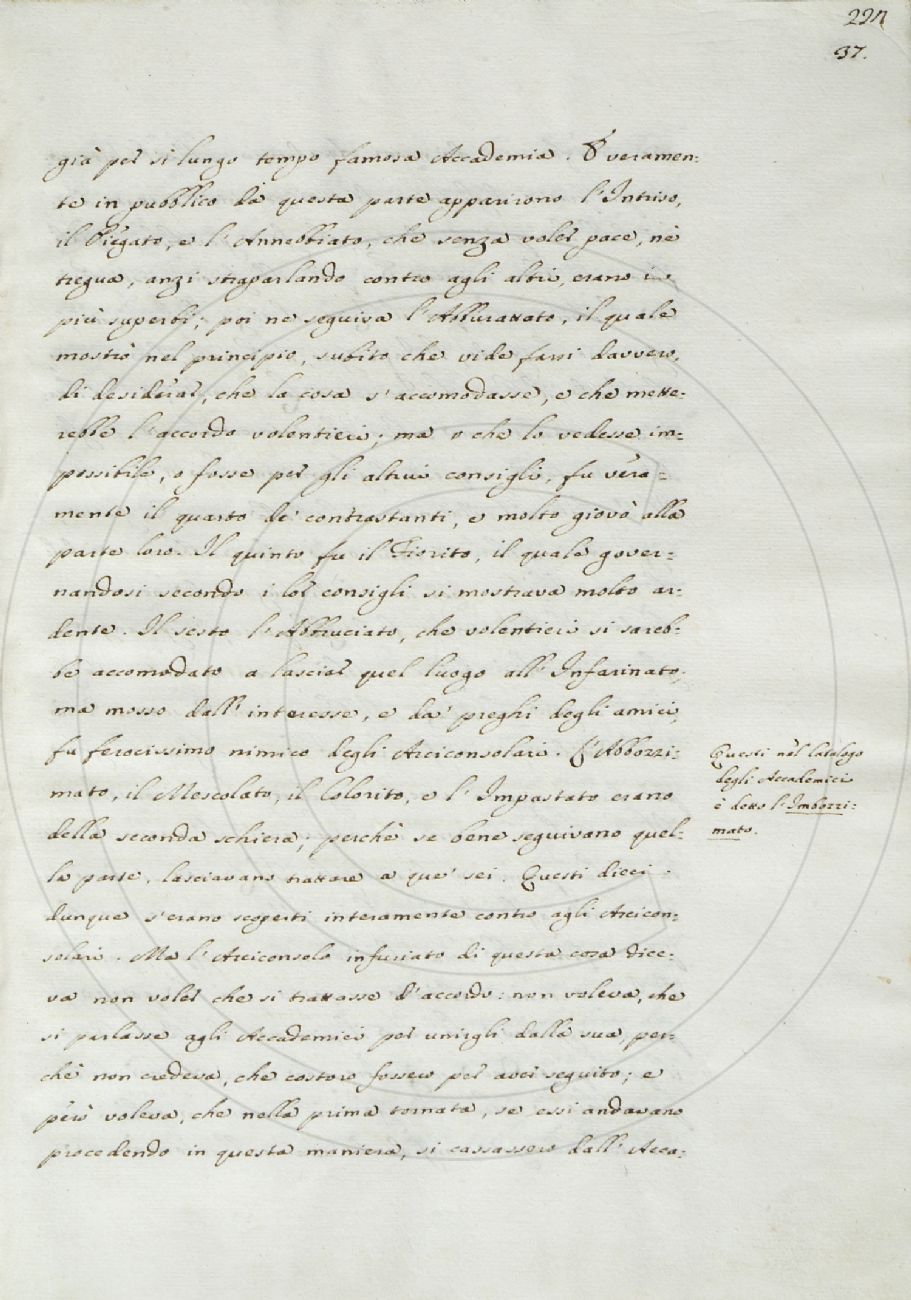 227
37.
già per sì lungo tempo famosa Accademia. E veramen:
te in pubblico da questa parte apparirono l'Intriso,
il Piegato, e l'Annebbiato, che senza voler pace, nè
tregua, anzi straparlando contro agli altri, erano i
più superbi; poi ne seguiva l'Abburattato, il quale
mostrò nel principio, subito che vide farsi davvero,
di desiderar, che la cosa s'accomodasse, e che mette:
rebbe l'accordo volentieri; ma o che lo vedesse im:
possibile, o fosse per gli altrui consigli, fu vera:
mente il quarto de' contrastanti, e molto giovò alla
parte loro. Il quinto fu il Fiorito, il quale gover:
nandosi secondo i lor consigli si mostrava molto ar:
dente. Il sesto l'Abbruciato, che volentieri si sareb:
be accomodato a lasciar quel luogo all'Infarinato,
ma mosso dall'interesse, e da' preghi degli amici,
fu ferocissimo nimico degli Arciconsolari. L'Abbozzi:
mato, il Mescolato, il Colorito, e l'Impastato erano
della seconda schiera; perchè se bene seguivano quel:
la parte, lasciavano trattare a que' sei. Questi dieci
dunque s'erano scoperti interamente contro agli Arcicon:
solari. Ma l'Arciconsolo infuriato di questa cosa dice:
va non voler che si trattasse d'accordo: non voleva, che
si parlasse agli Accademici per unirgli dalla sua, per:
chè non credeva, che costoro fossero per aver seguito; e
però voleva, che nella prima tornata, se essi andavano
procedendo in questa maniera, si cassassero dall'Acca:
Questi nel Catalogo
degli Accademici
è detto l'Imbozzi:
mato.